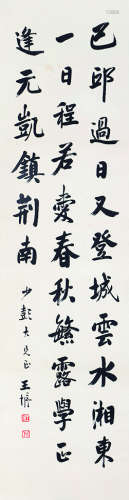 己邱過日又登城雲水湘東
一日程若愛春秋繁露學正
逢元凱鎮荊南
少彭大兄正 王㥽